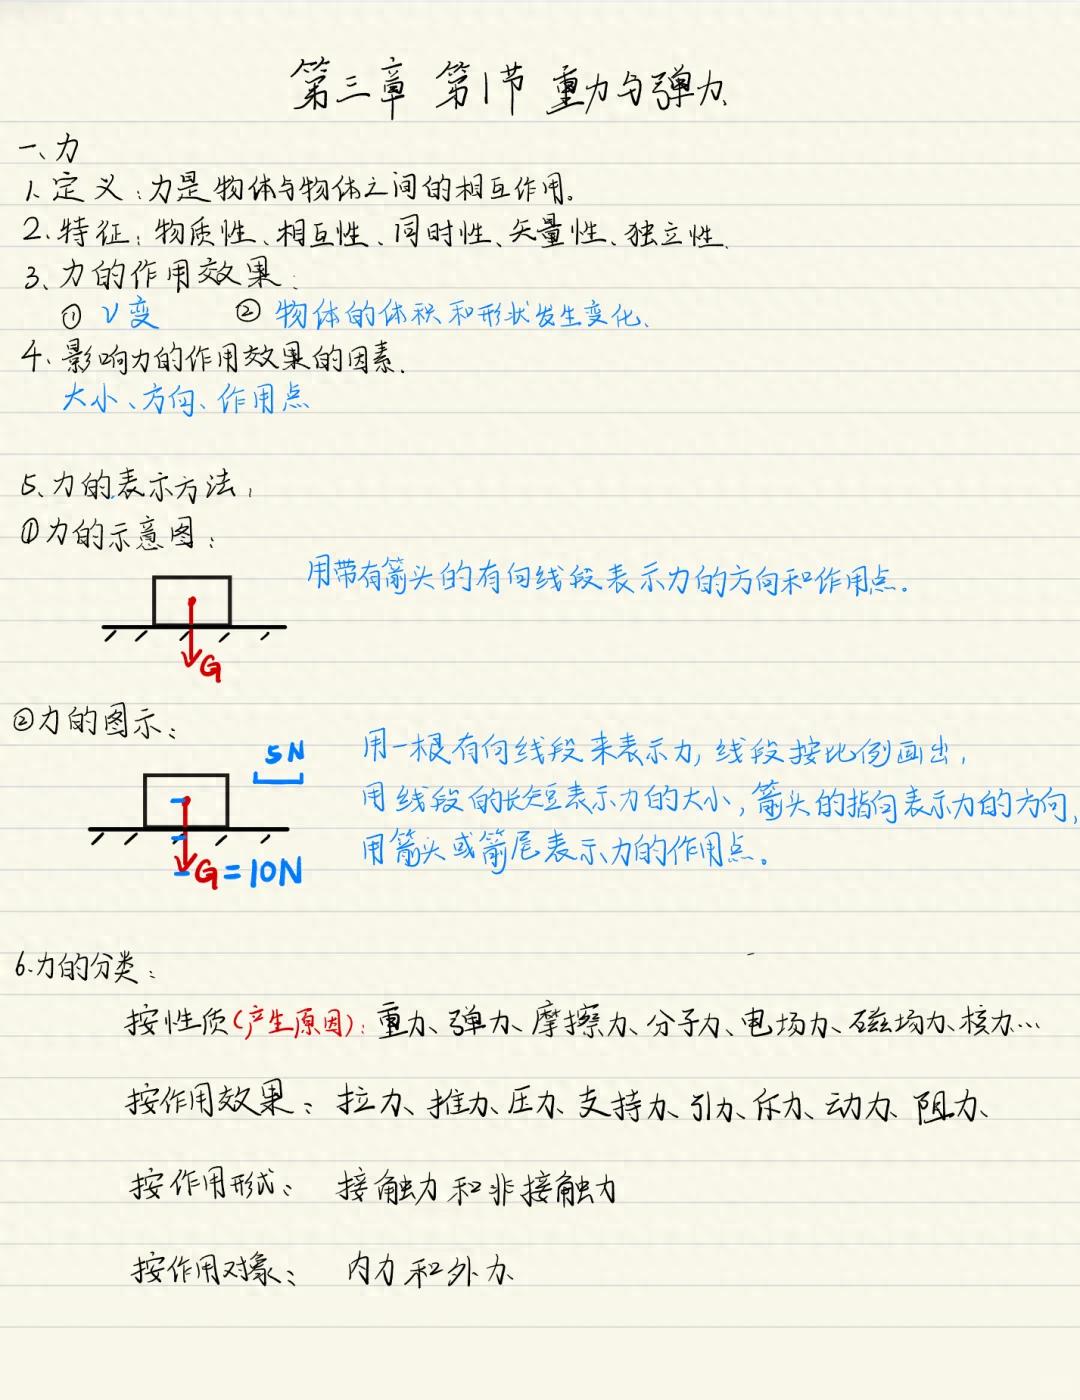 第三章 第1节 重力与弹力
一、力
1、定义:力是物体与物体之间的相互作用。
2、特征:物质性、相互性、同时性、矢量性、独立性
3、力的作用效果:
① V变 ② 物体的体积和形状发生变化、
4、影响力的作用效果的因素.
大小、方向、作用点
5、力的表示方法:
①力的示意图:
用带有箭头的有向线段表示力的方向和作用点.
G
②力的图示:
5N
用一根有向线段来表示力,线段按比例画出,
用线段的长短表示力的大小,箭头的指向表示力的方向,
用箭头或箭尾表示力的作用点。
G=10N
6.力的分类:
按性质(产生原因):重力、弹力、摩擦力、分子力、电场力、磁场力、核力…
按作用效果:拉力、推力、压力、支持力、引力、斥力、动力、阻力、
按作用形式:接触力和非接触力
按作用对象:内力和外力